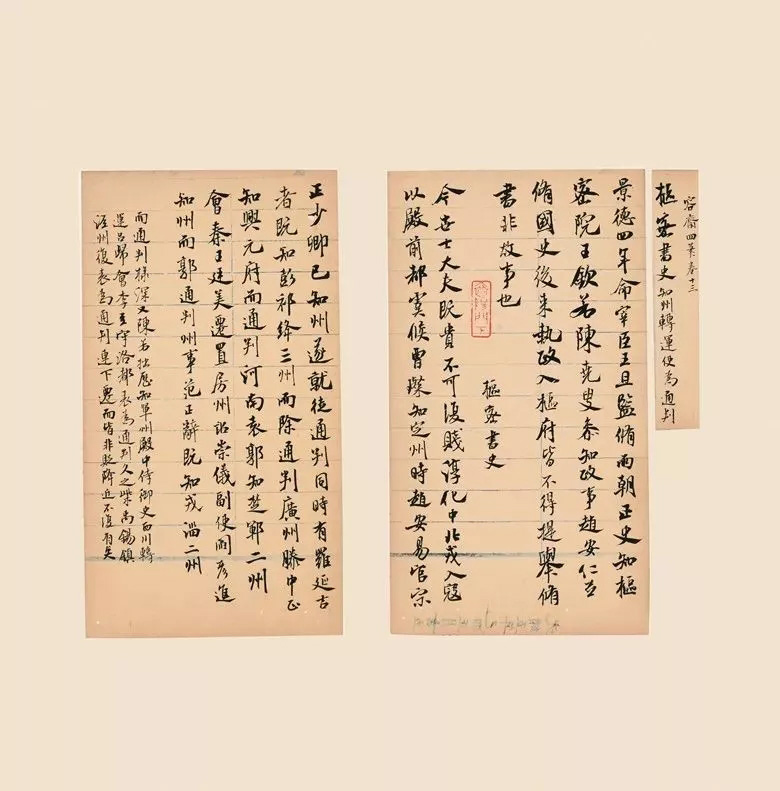 容齋四筆卷十三
樞密書史知州轉運使爲通判
景德四年命宰臣王旦監脩兩朝正史知樞
密院王欽若陳堯叟參知政事趙安仁並
脩國史後来執政入樞府皆不得提舉脩
書非故事也
樞密書史
今世士大夫既貴不可復賤淳化中北戎入寇
以殿前都虞候曹璨知定州時趙安易官宗
正少卿已知州遂就徙通判同時有羅延吉
者既知彭祁絳三州而除通判廣州滕中正
知興元府而通判河南袁郭知楚鄆二州
會秦王廷美遷置房州詔崇儀副使閻彥進
知州而郭通判州事范正辭既知戎淄二州
而通判棣深又陳若拙歷知單州殿中侍御史西川轉
運召歸會李至守洛都表爲通判久之柴禹錫鎮
涇州復表爲通判連下遷而皆非貶降近不復有矣